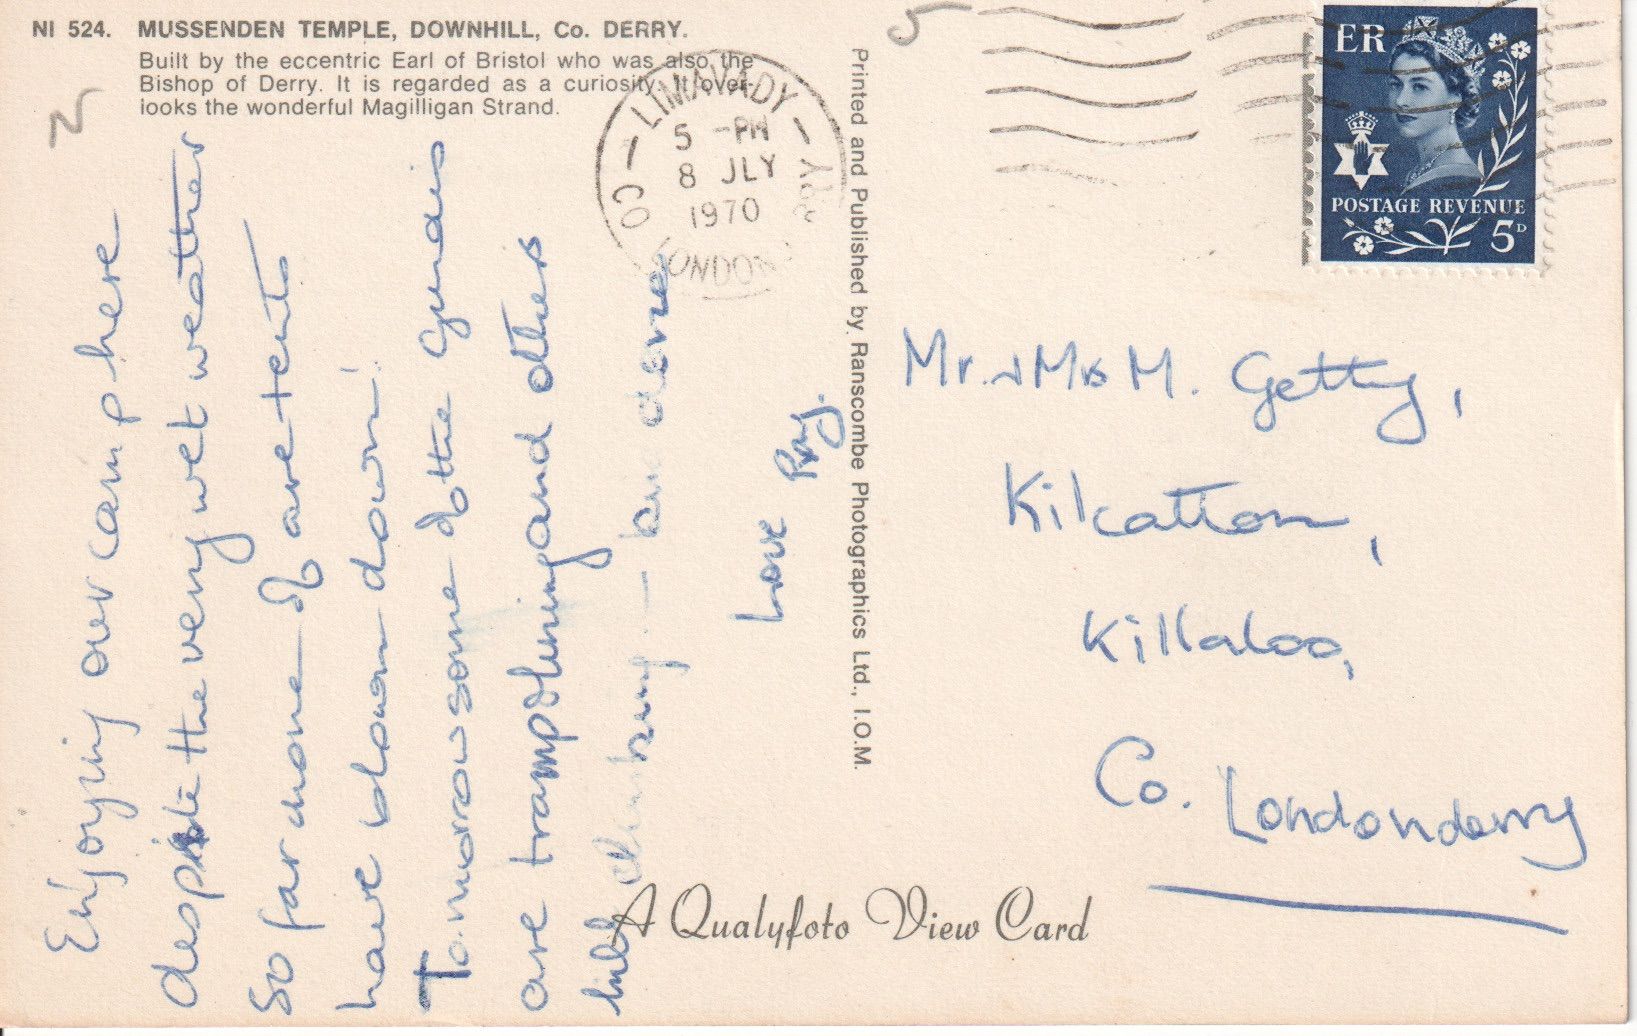 NI 524. MUSSENDEN TEMPLE, DOWNHILL, Co. DERRY.
Built by the eccentric Earl of Bristol who was also the
Bishop of Derry. It is regarded as a curiosity. It over-
looks the wonderful Magilligan Strand.
2
5
LIMAVADY
5 -PM
8 JLY
1970
CO LONDON RRY
ER
POSTAGE REVENUE
5D
Enjoying our camp here
despite the very wet weather
so far none of are tents
have blown down!
Tomorrow some of the guides
are trampolining and others
hill climbing — and
Love
Printed and Published by Ranscombe Photographics Ltd., I.O.M.
Mr. & Mrs M. Getty,
Kilcatton,
Killaloo,
Co. Londonderry
A Qualyfoto View Card